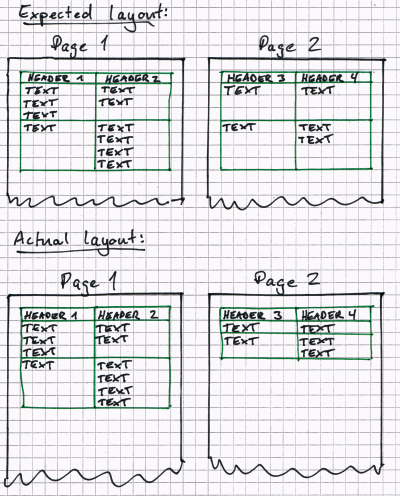 Expected layout:
Page 1
HEADER 1 HEADER 2
TEXT TEXT
TEXT TEXT
TEXT
TEXT TEXT
TEXT
TEXT
TEXT
Page 2
HEADER 3 HEADER 4
TEXT TEXT
TEXT TEXT
TEXT
Actual layout:
Page 1
HEADER 1 HEADER 2
TEXT TEXT
TEXT TEXT
TEXT
TEXT TEXT
TEXT
TEXT
TEXT
Page 2
HEADER 3 HEADER 4
TEXT TEXT
TEXT TEXT
TEXT